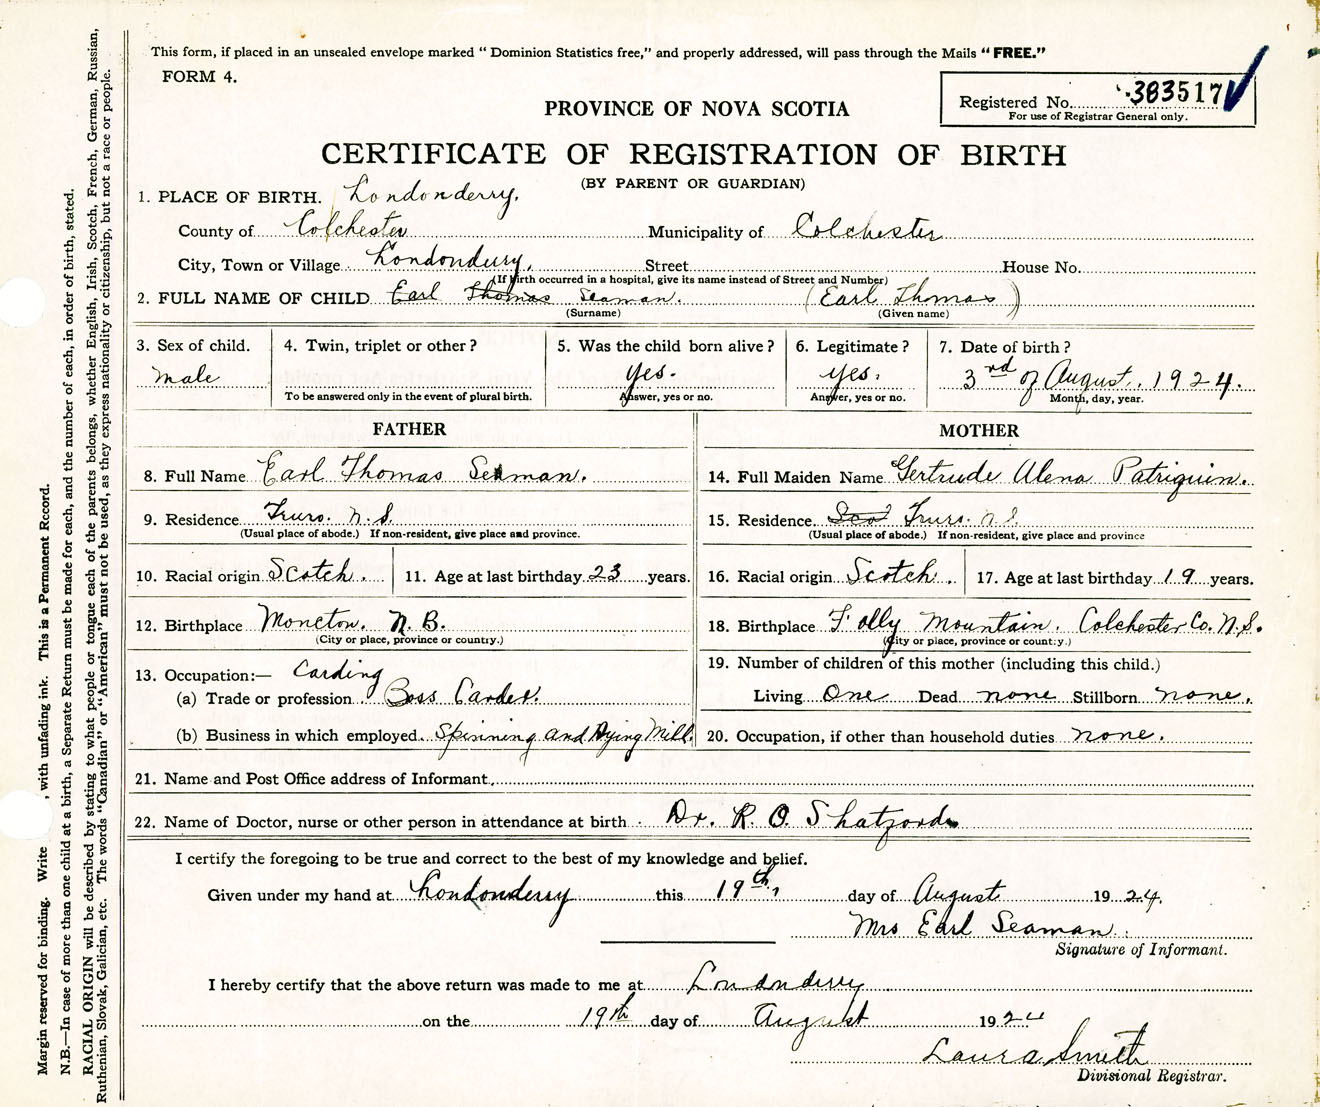 This form, if placed in an unsealed envelope marked “ Dominion Statistics free,” and properly addressed, will pass through the Mails “ FREE.”
FORM 4.
Registered No. 383517
For use of Registrar General only.
PROVINCE OF NOVA SCOTIA
CERTIFICATE OF REGISTRATION OF BIRTH
(BY PARENT OR GUARDIAN)
1. PLACE OF BIRTH. Londonderry.
County of Colchester Municipality of Colchester
City, Town or Village Londonderry. Street House No.
(If birth occurred in a hospital, give its name instead of Street and Number)
2. FULL NAME OF CHILD Earl Thomas Seaman. (Earl Thomas)
(Surname) (Given name)
3. Sex of child. 4. Twin, triplet or other? 5. Was the child born alive? 6. Legitimate? 7. Date of birth?
male yes. yes. 3rd of August. 1924.
To be answered only in the event of plural birth. Answer, yes or no. Answer, yes or no. Month, day, year.
FATHER MOTHER
8. Full Name Earl Thomas Seaman. 14. Full Maiden Name Gertrude Alena Patriquin.
9. Residence Truro. N.S. 15. Residence Sco Truro. N.S.
(Usual place of abode.) If non-resident, give place and province. (Usual place of abode.) If non-resident, give place and province
10. Racial origin Scotch. 11. Age at last birthday 23 years. 16. Racial origin Scotch. 17. Age at last birthday 19 years.
12. Birthplace Moncton. N.B. 18. Birthplace Folly Mountain. Colchester Co. N.S.
(City or place, province or country.) (City or place, province or country.)
13. Occupation:— Carding 19. Number of children of this mother (including this child.)
(a) Trade or profession Boss Carder. Living One Dead none Stillborn none.
(b) Business in which employed. Spinning and Dying Mill. 20. Occupation, if other than household duties none.
21. Name and Post Office address of Informant.
22. Name of Doctor, nurse or other person in attendance at birth Dr. R. O. Shatford
I certify the foregoing to be true and correct to the best of my knowledge and belief.
Given under my hand at Londonderry this 19th, day of August 1924.
Mrs Earl Seaman.
Signature of Informant.
I hereby certify that the above return was made to me at Londonderry
on the 19th day of August 1924
Laura Smith
Divisional Registrar.
Margin reserved for binding. Write , with unfading ink. This is a Permanent Record.
N.B.—In case of more than one child at a birth, a Separate Return must be made for each, and the number of each, in order of birth, stated.
RACIAL ORIGIN will be described by stating to what people or tongue each of the parents belongs, whether English, Irish, Scotch, French, German, Russian,
Ruthenian, Slovak, Galician, etc. The words “Canadian” or “American” must not be used, as they express nationality or citizenship, but not a race or people.